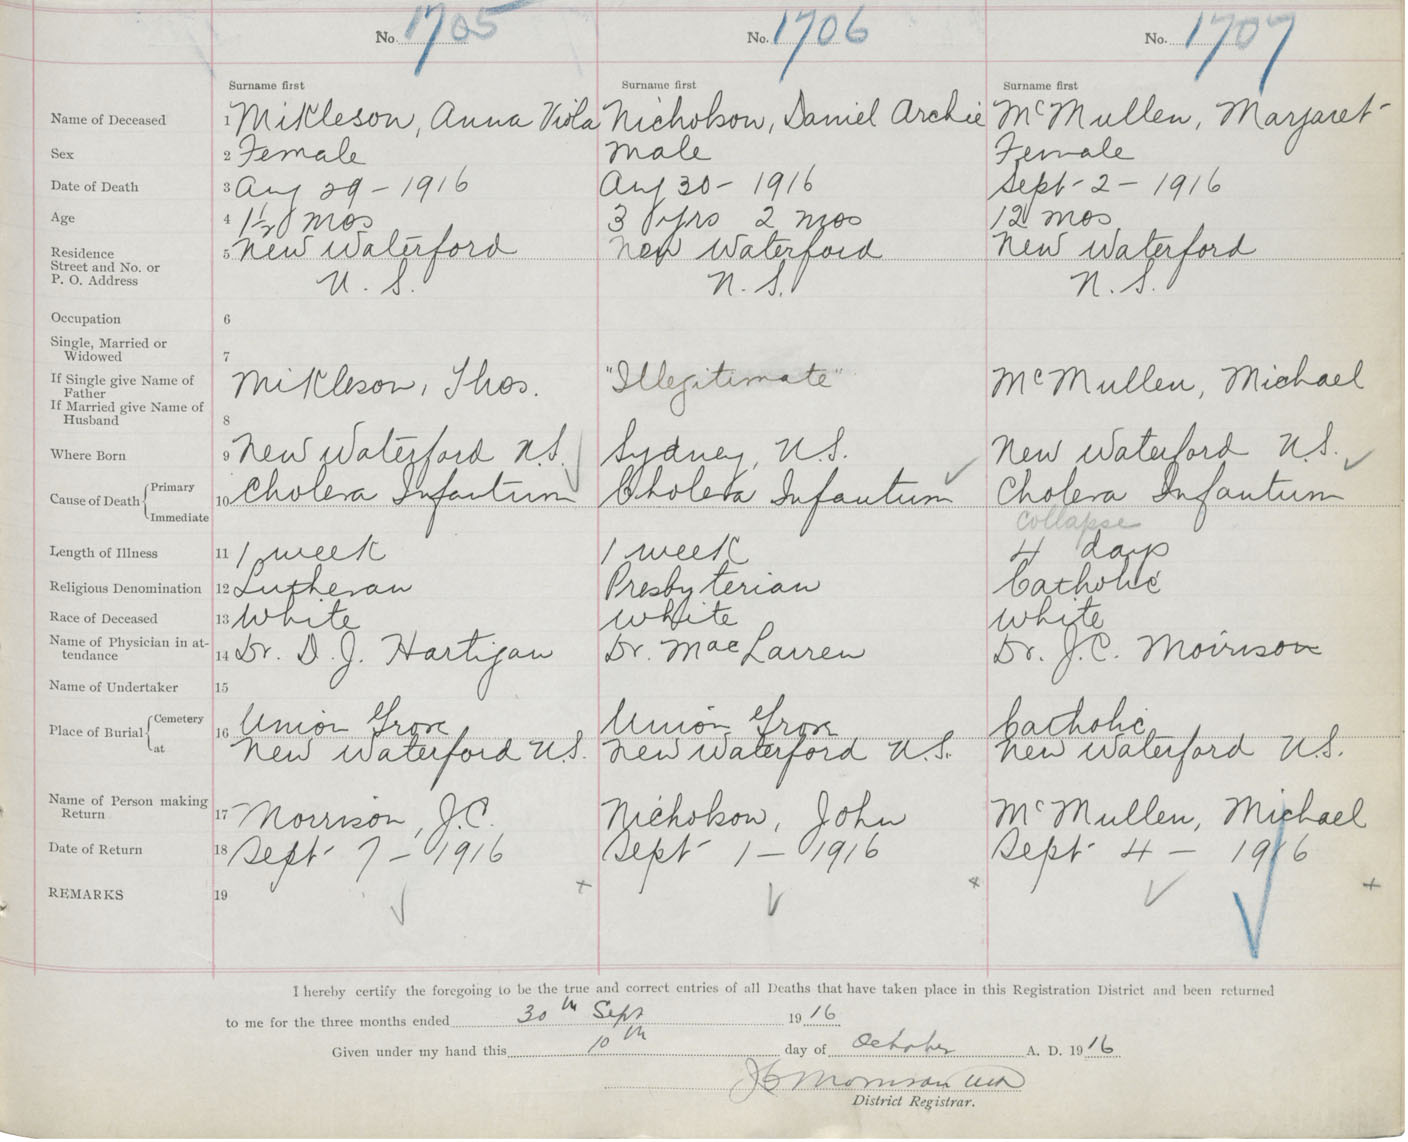 No. 1705 No. 1706 No. 1707
Surname first Surname first Surname first
Name of Deceased 1 Mikleson, Anna Viola Nicholson, Daniel Archie McMullen, Margaret
Sex 2 Female Male Female
Date of Death 3 Aug 29 - 1916 Aug 30 - 1916 Sept - 2 - 1916
Age 4 1½ mos 3 yrs 2 mos 12 mos
Residence 5 New Waterford New Waterford New Waterford
Street and No. or
P. O. Address N. S. N. S. N. S.
Occupation 6
Single, Married or
Widowed 7
If Single give Name of
Father Mikleson, Thos. "Illegitimate" McMullen, Michael
If Married give Name of
Husband 8
Where Born 9 New Waterford N.S. Sydney, N.S. New Waterford N.S.
Cause of Death Primary 10 Cholera Infantum Cholera Infantum Cholera Infantum
Immediate collapse
Length of Illness 11 1 week 1 week 4 days
Religious Denomination 12 Lutheran Presbyterian Catholic
Race of Deceased 13 White White White
Name of Physician in at-
tendance 14 Dr. D. J. Hartigan Dr. MacLarren Dr. J.C. Morrison
Name of Undertaker 15
Place of Burial Cemetery 16 Union Grove Union Grove Catholic
at New Waterford N.S. New Waterford N.S. New Waterford N.S.
Name of Person making
Return 17 Morrison, J.C. Nicholson, John McMullen, Michael
Date of Return 18 Sept - 7 - 1916 Sept - 1 - 1916 Sept - 4 - 1916
REMARKS 19
I hereby certify the foregoing to be the true and correct entries of all Deaths that have taken place in this Registration District and been returned
to me for the three months ended 30th Sept 1916
Given under my hand this 10th day of October A. D. 1916
JC Morrison MD
District Registrar.